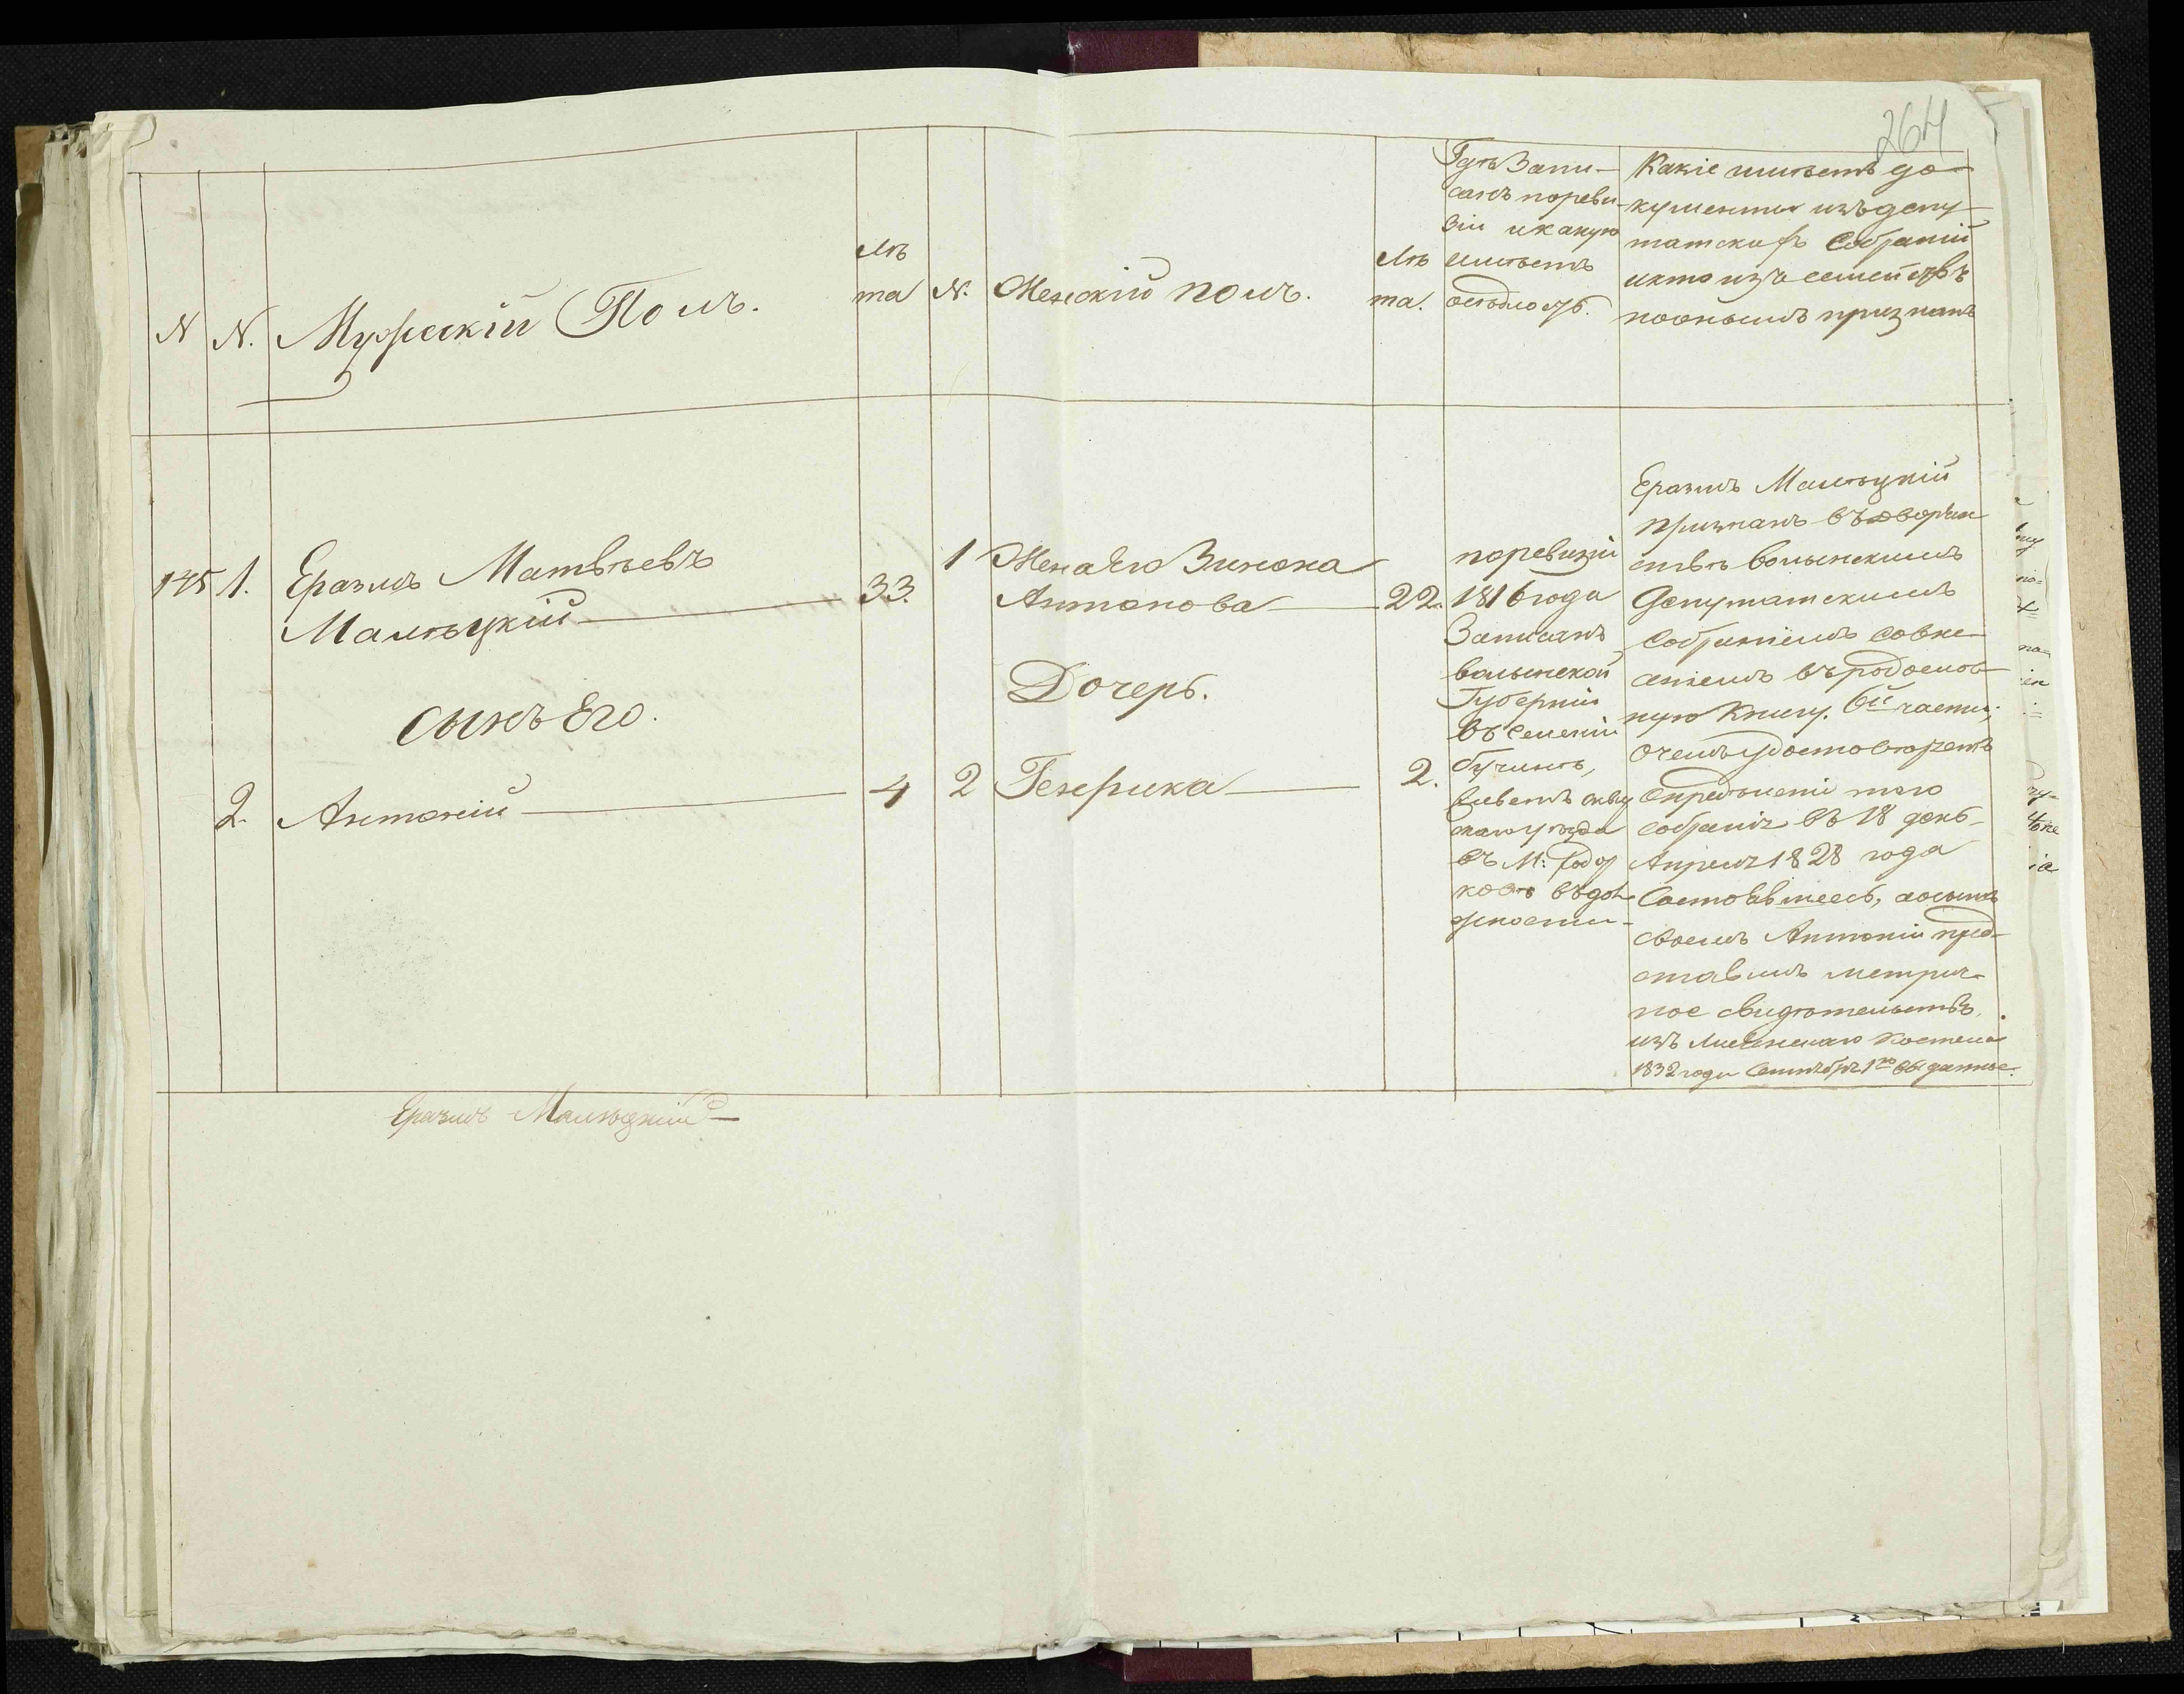 264
N
N.
Мужескій Полъ.
Лѣ
та
N.
Женскій полъ.
Лѣ
та.
Гдѣ Запи-
санъ пореви-
зіи икакую
имѣетъ
осѣдлость.
Какіе имѣетъ до-
кументы изъдепу-
татскихъ Собраній
икто изъ семействъ
поонымъ признанъ
175
1.
Еразмъ Матвѣевъ
Малѣцкій
33.
сынъ Его.
2.
Антоній
4
1
Жена Его Зинона
Антонова
22.
Дочерь.
2
Генрика
2.
поревизіи
1816 года
Записанъ
волынской
Губерніи
въ селеніи
маго уѣзда
въ М:
въдол-
жности-
Еразмъ Малѣцкій
признанъ въдворян-
ствѣ волынскимъ
Депутатскимъ
Собраніемъ совне-
сеніемъ въродослов-
ную Книгу. 6й части;
очемъ удостовѣряетъ
опредѣленіи того
собранія въ 18 день
Апреля 1828 года
Состоявшеесь, осынѣ
своемъ Антоніи пред-
ставилъ метрич-
ное свидѣтельство,
изъ костела
1832 года Сентября 1го выданное.
Еразмъ Малѣцкій